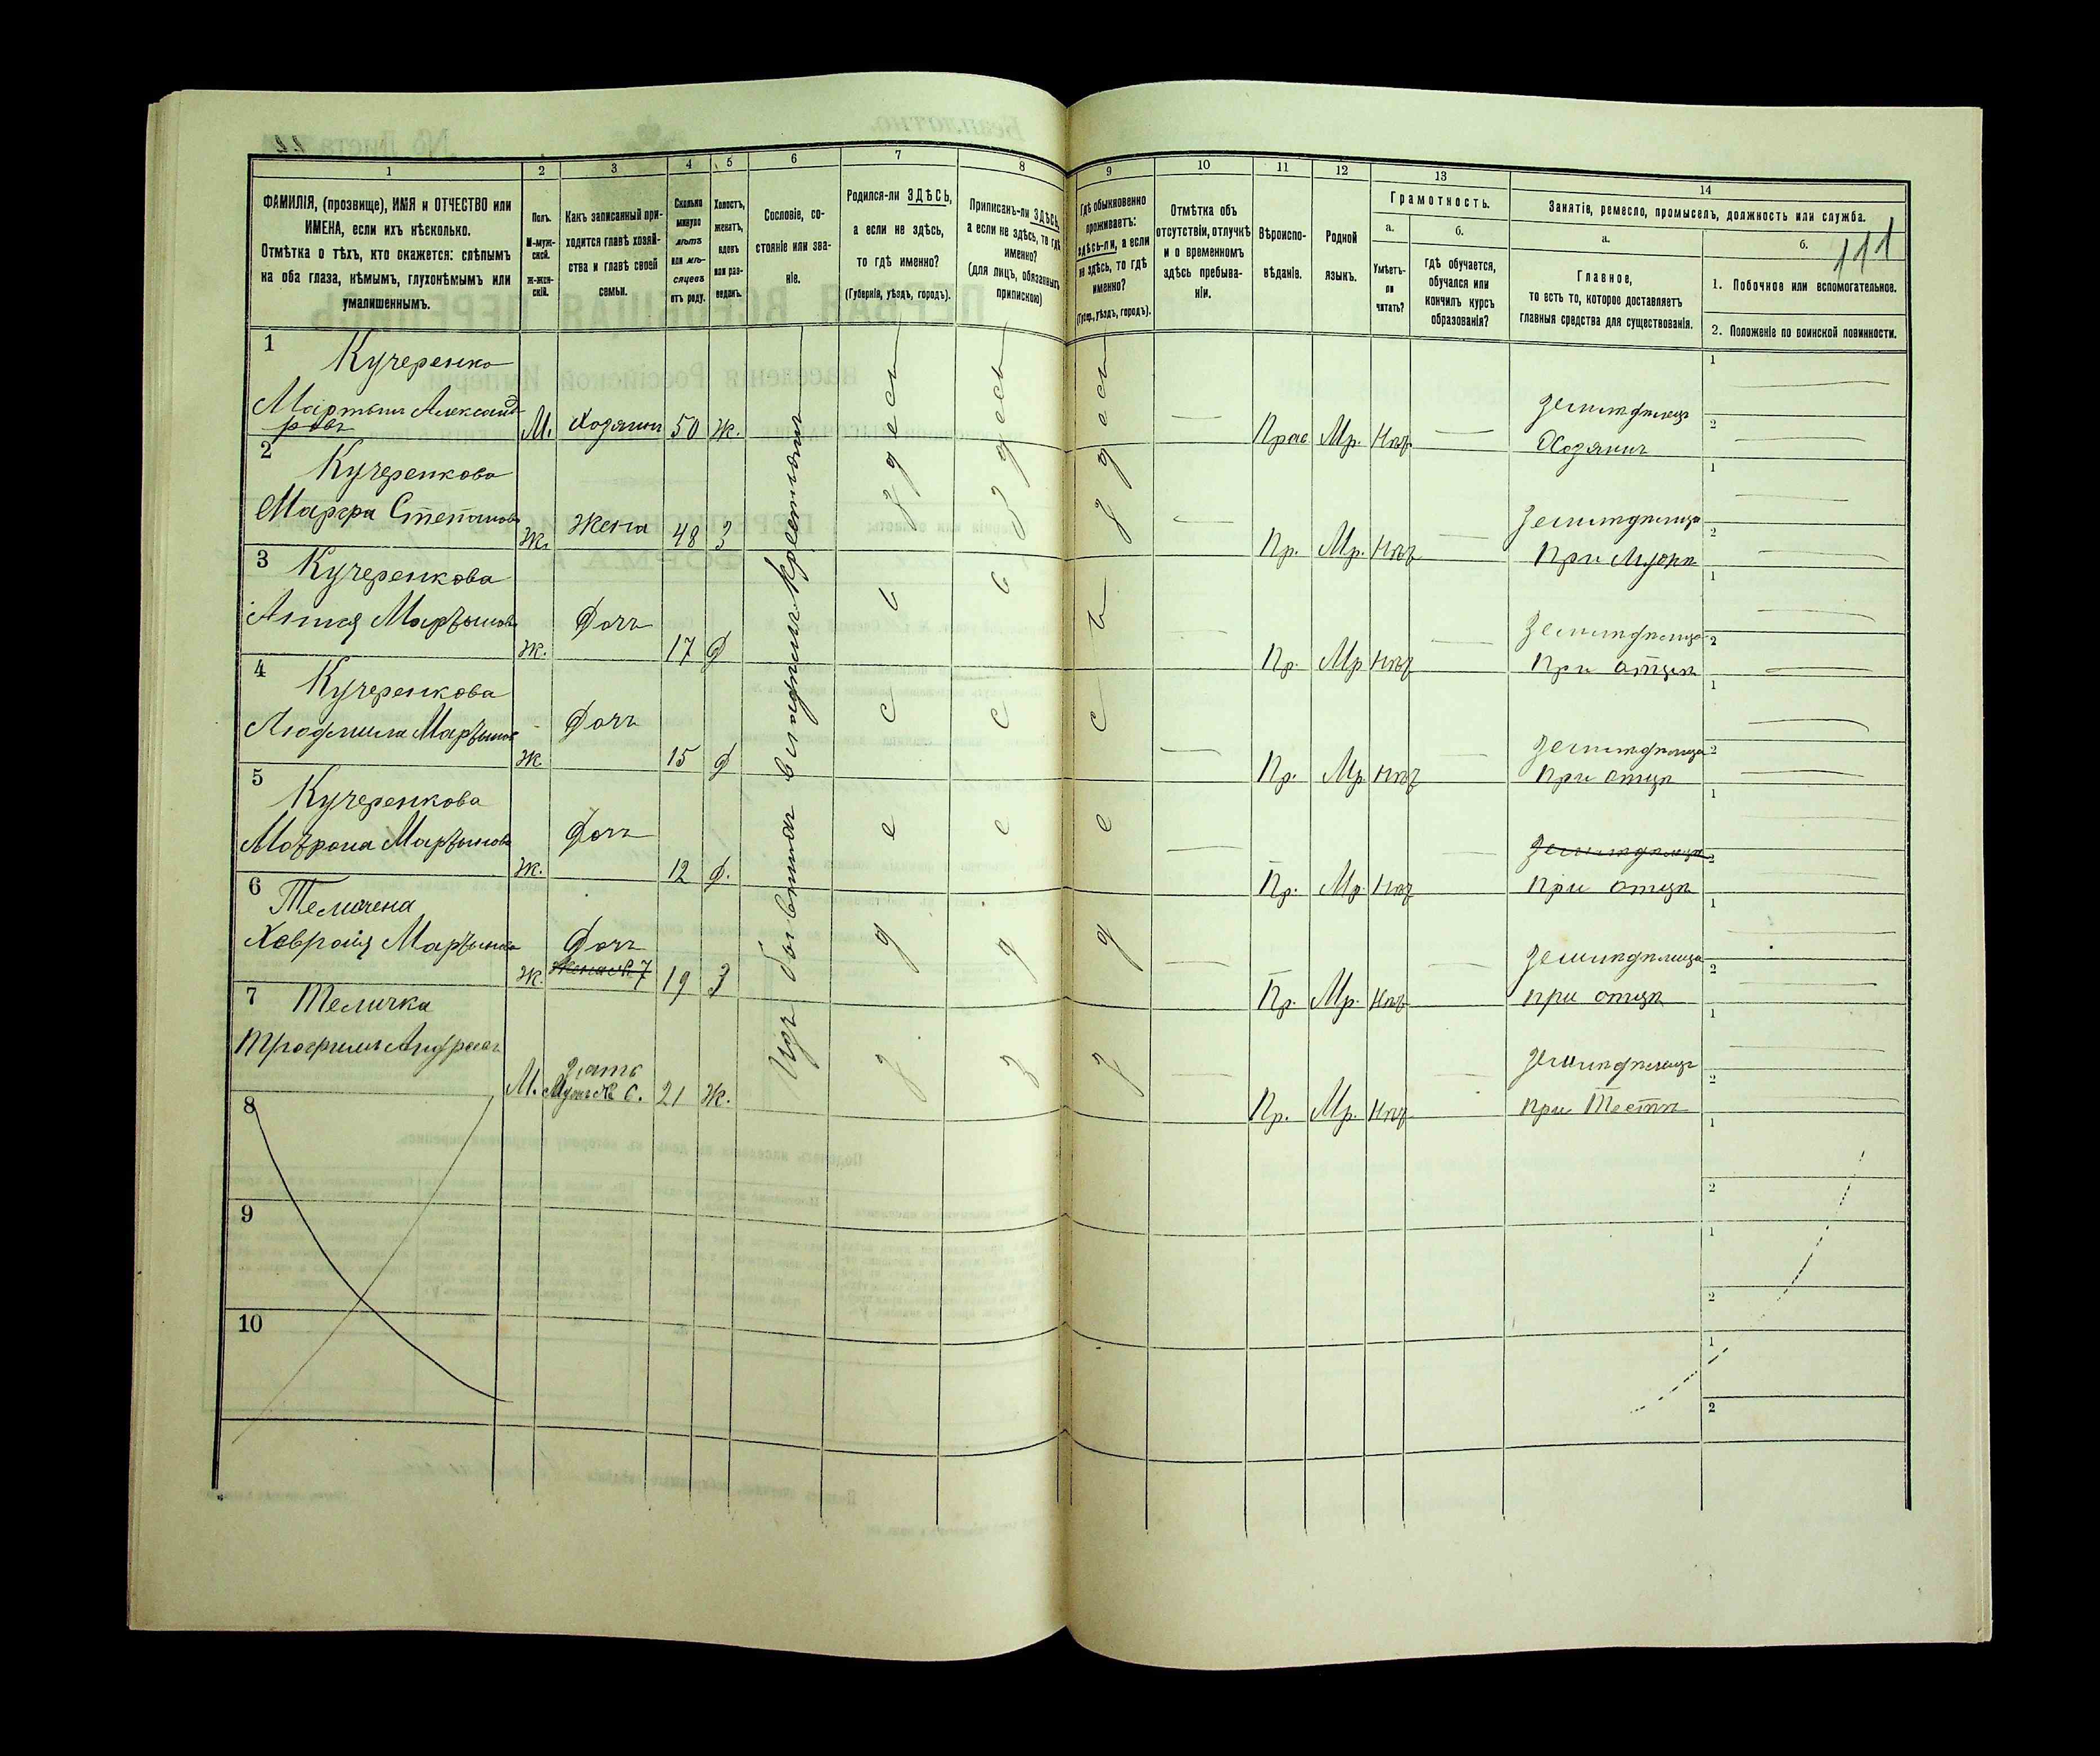 1
2
3
4
5
6
7
8
9
10
11
12
13
14
ФАМИЛІЯ, (прозвище), ИМЯ и ОТЧЕСТВО или
ИМЕНА, если ихъ нѣсколько.
Отмѣтка о тѣхъ, кто окажется: слѣпымъ
на оба глаза, нѣмымъ, глухонѣмымъ или
умалишеннымъ.
Полъ.
М-муж-
ской.
Ж-жен-
скій.
Какъ записанный при-
ходится главѣ хозяй-
ства и главѣ своей
семьи.
Сколько
минуло
лѣтъ
или мѣ-
сяцевъ
отъ роду.
Холостъ,
женатъ,
вдовъ
или раз-
веденъ.
Сословіе, со-
стояніе или зва-
ніе.
Родился-ли ЗДѢСЬ,
а если не здѣсь,
то гдѣ именно?
(Губернія, уѣздъ, городъ).
Приписанъ-ли ЗДѢСЬ,
а если не здѣсь, то гдѣ
именно?
(для лицъ, обязанныхъ
припискою)
Гдѣ обыкновенно
проживаетъ:
здѣсь-ли, а если
не здѣсь, то гдѣ
именно?
(Губер., уѣздъ, городъ).
Отмѣтка объ
отсутствіи, отлучкѣ
и о временномъ
здѣсь пребыва-
ніи.
Вѣроиспо-
вѣданіе.
Родной
языкъ.
Грамотность.
а.
Умѣетъ-
ли
читать?
б.
гдѣ обучается,
обучался или
кончилъ курсъ
образованія?
Занятіе, ремесло, промыселъ, должность или служба.
а.
Главное,
то есть то, которое доставляетъ
главныя средства для существованія.
б.
111
1. Побочное или вспомогательное.
2. Положеніе по воинской повинности.
Изъ бывшихъ владѣльч. Крестьянъ
здесь
Здесь
здесь
1
Кучеренко
Мартынъ Александ
ровъ
М. Хозяинъ 50 Ж.
Прав Мр. Нѣт
землидѣлецъ
Хозяинъ
2
Кучеренкова
Марфа Степанова
Ж. Жена 48 З
Пр. Мр. Нѣт
землидѣлица
При Мужѣ
3
Кучеренкова
Анна Мартынова
Ж. Дочь 17 Д
Пр. Мр Нѣт
землидѣлица
При отцѣ
4
Кучеренкова
Людмила Мартынов
Ж Дочь 15 Д
Пр. Мр Нѣт
землидѣлица
При отцѣ
5
Кучеренкова
Мотрона Мартынова
Ж. Дочь 12 Д.
Пр. Мр. Нѣт
землидѣлица
при отцѣ
6
Хавронія Мартынова
Дочь
Ж. Жена № 7 19 З
Пр. Мр. Нѣт
землидѣлица
при отцѣ
7
Теличка
Трофимъ Андреевъ
зять
М. Мужъ № 6. 21 Ж.
Пр. Мр. Нѣт
землидѣлецъ
при Тестѣ
8
9
10